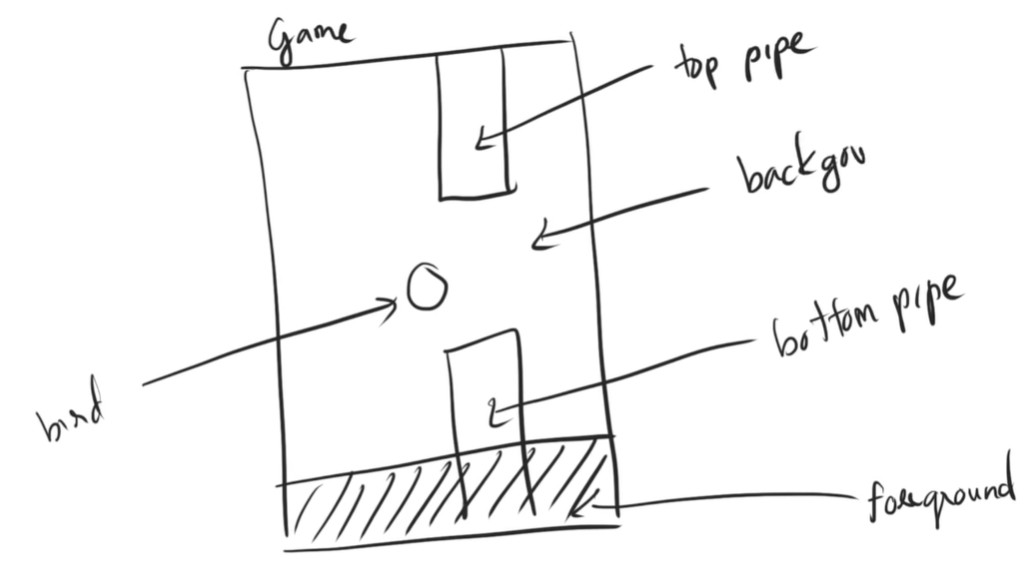 Game
top pipe
backgou
bird
bottom pipe
foreground